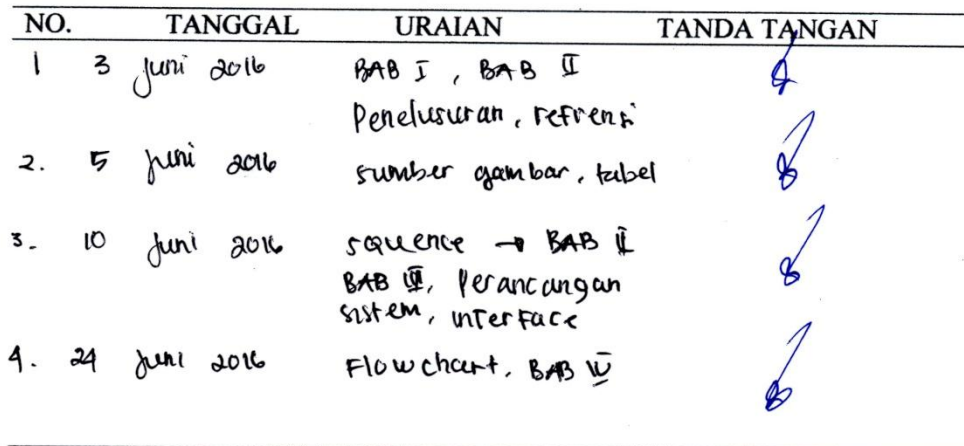 NO. TANGGAL URAIAN TANDA TANGAN
1 3 Juni 2016 BAB I, BAB II
Penelusuran, refrensi
2. 5 Juni 2016 sumber gambar, tabel
3. 10 Juni 2016 squence → BAB II
BAB III, Perancangan
sistem, interface
4. 24 Juni 2016 Flowchart, BAB IV